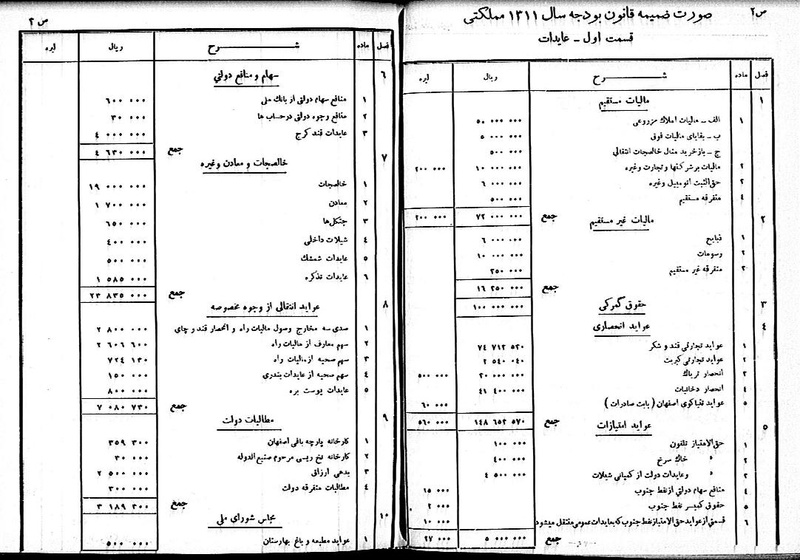 ص ۲
صورت ضمیمه قانون بودجه سال ۱۳۱۱ مملکتی
قسمت اول - عایدات
فصل ماده شــــرح ریال لیره
۱ مالیات مستقیم
۱ الف - مالیات املاک مزروعی ۵۰ ۰۰۰ ۰۰۰
ب - بقایای مالیات فوق ۵ ۰۰۰ ۰۰۰
ج - بازخرید مثال خالصجات انتقالی ۵۰۰ ۰۰۰
۲ مالیات بر شرکتها و تجارت وغیره ۱۰ ۰۰۰ ۰۰۰ ۲۰۰ ۰۰۰
۳ حق الثبت اتومبیل وغیره ۶ ۰۰۰ ۰۰۰
۴ متفرقه مستقیم ۵۰۰ ۰۰۰
جمع ۷۲ ۰۰۰ ۰۰۰ ۲۰۰ ۰۰۰
۲ مالیات غیر مستقیم
۱ ذبایح ۶ ۰۰۰ ۰۰۰
۲ رسومات ۱۰ ۰۰۰ ۰۰۰
۳ متفرقه غیر مستقیم ۲۵۰ ۰۰۰
جمع ۱۶ ۲۵۰ ۰۰۰
۳ حقوق گمرکی ۱۰۰ ۰۰۰ ۰۰۰
۴ عواید انحصاری
۱ عواید تجارتی قند و شکر ۷۴ ۷۱۲ ۵۳۰
۲ عواید تجارتی کبریت ۲ ۵۴۰ ۰۴۰
۳ انحصار تریاک ۳۰ ۰۰۰ ۰۰۰ ۵۰۰ ۰۰۰
۴ انحصار دخانیات ۴۱ ۴۰۰ ۰۰۰
۵ عواید تنباکوی اصفهان (بابت صادرات) ۶۰ ۰۰۰
جمع ۱۴۸ ۶۵۲ ۵۷۰ ۵۶۰ ۰۰۰
۵ عواید امتیازات
۱ حق الامتیاز تلفون ۱۰۰ ۰۰۰
۲ » خاک سرخ ۴۰۰ ۰۰۰
۳ » وعایدات دولت از کمپانی شیلات ۴ ۵۰۰ ۰۰۰
۴ منافع سهام دولتی از نفط جنوب ۱۵ ۰۰۰
۵ حقوق کمیسر نفط جنوب ۲ ۰۰۰
۶ قسمتی از عواید حق الامتیاز نفط جنوب که بعایدات عمومی منتقل میشود ۱۰ ۰۰۰
جمع ۵ ۰۰۰ ۰۰۰ ۲۷ ۰۰۰
ص ۳
فصل ماده شــــرح ریال لیره
۶ سهام و منافع دولتی
۱ منافع سهام دولتی از بانک ملی ۶۰۰ ۰۰۰
۲ منافع وجوه دولتی در حساب ها ۳۰ ۰۰۰
۳ عایدات قند کرج ۴ ۰۰۰ ۰۰۰
جمع ۴ ۶۳۰ ۰۰۰
۷ خالصجات و معادن وغیره
۱ خالصجات ۱۹ ۰۰۰ ۰۰۰
۲ معادن ۱ ۷۰۰ ۰۰۰
۳ جنگلها ۶۵۰ ۰۰۰
۴ شیلات داخلی ۴۰۰ ۰۰۰
۵ عایدات شمشک ۵۰۰ ۰۰۰
۶ عایدات تذکره ۱ ۵۸۵ ۰۰۰
جمع ۲۳ ۸۳۵ ۰۰۰
۸ عواید انتقالی از وجوه مخصوصه
۱ صدی سه مخارج وصول مالیات راه و انحصار قند و چای ۲ ۸۰۰ ۰۰۰
۲ سهم معارف از مالیات راه ۲ ۶۰۶ ۶۰۰
۳ سهم صحیه از مالیات راه ۷۲۴ ۱۳۰
۴ سهم صحیه از عایدات بندری ۱۵۰ ۰۰۰
۵ عایدات پوست بره ۸۰۰ ۰۰۰
جمع ۷ ۰۸۰ ۷۳۰
۹ مطالبات دولت
۱ کارخانه پارچه بافی اصفهان ۳۵۹ ۳۰۰
۲ کارخانه نخ ریسی مرحوم صنیع الدوله ۳۰ ۰۰۰
۳ بدهی ارزاق ۲ ۵۰۰ ۰۰۰
۴ مطالبات متفرقه دولت ۳۰۰ ۰۰۰
جمع ۳ ۱۸۹ ۳۰۰
۱۰ مجلس شورای ملی
۱ عواید مطبعه و باغ بهارستان ۵۰۰ ۰۰۰